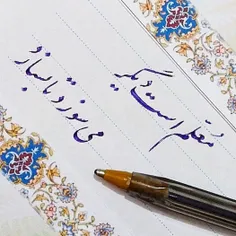 معلّم است دیگر
می سوزد تا بسازد